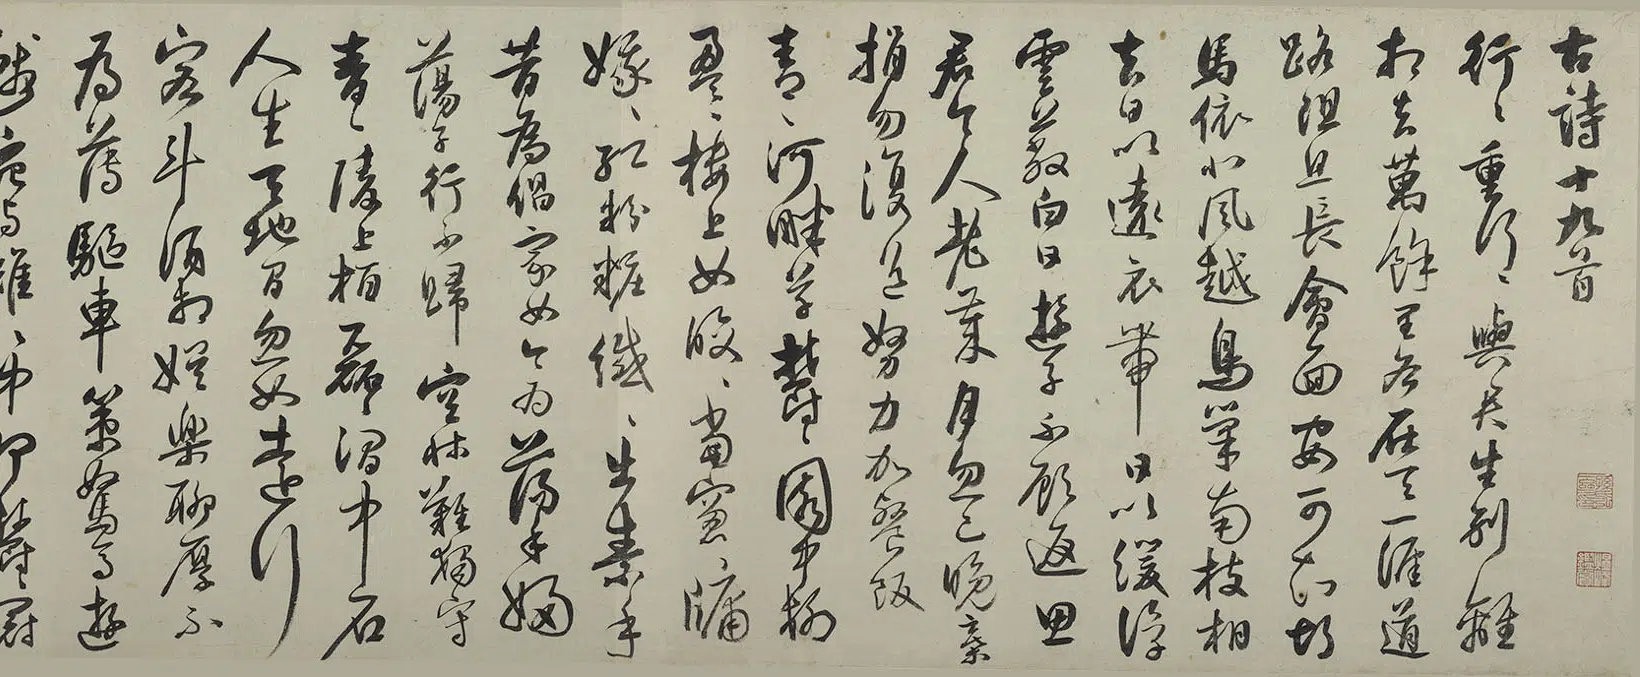 古詩十九首
行〻重行〻與君生別離
相去萬餘里各在天一涯道
路阻且長會面安可知胡
馬依北風越鳥巢南枝相
去日以遠衣帶日以緩浮
雲蔽白日遊子不顧返思
君令人老歲月忽已晚棄
捐勿復道努力加餐飯
青〻河畔草鬱〻園中柳
盈〻樓上女皎〻當窗〻牖
娥〻紅粉粧纖〻出素手
昔為倡家女今為蕩子婦
蕩子行不歸空牀難獨守
青〻陵上柏磊〻澗中石
人生天地間忽如遠行
客斗酒相娛樂聊厚不
為薄驅車策駑馬遊
戲宛與雒〻中何鬱〻冠